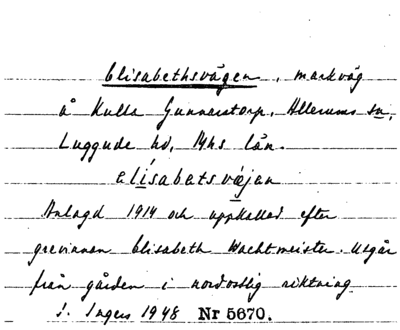 Elisabethsvägen, markväg
å Kulla Gunnarstorp, Allerums sn,
Luggude hd, Mhs län.
elísabetsvæjen
Anlagd 1914 och uppkallad efter
grevinnan Elisabeth Wachtmeister. Utgår
från gården i nordostlig riktning.
I. Ingers 1948 Nr 5670.